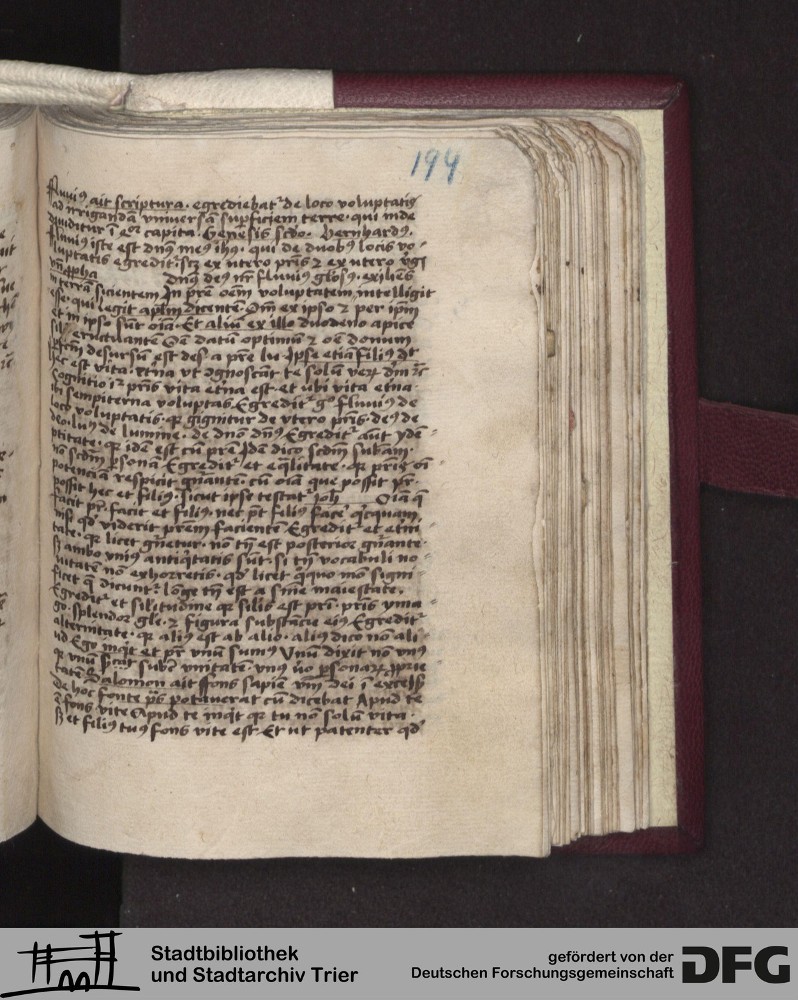 194
Fluuiꝰ ait scriptura · egrediebat᷑ de loco voluptatis
ad irrigandā vniuersā suꝑficiem terre · qui inde
diuiditur ī eoꝝ capita · Genesis scdo · Bernhardꝰ ·
Fluuiꝰ iste est dnꝰ meꝰ ihꝰ · qui de duobꝰ locis vo-
luptatis egredit᷑ · scꝫ ex vtero prīs ⁊ ex vtero vgīs
Dnꝰ deꝰ nr̄ fluuiꝰ glosꝰ · exiliēs
in terrā sicientem In prē oēm voluptatem intelligit
esse · qui legit aplm dicentē · Qm̄ ex ipso ⁊ per ipm̄
et in ipso sūt oīa · Et aliū ex illo duodeno apice
eructuantē Oē datū optimū ⁊ oē donum
desursū est des a prē lu · Ipse etiā filiꝰ
hec est vita etna vt ognoscāt te solū verū dm̄
Cognitio prīs vita etna est · et ubi vita etna
ibi sempiterna voluptas Egredit᷑ gͦ fluuiꝰ de
loco voluptatis · qꝛ gignitur de vtero prīs · deꝰ de
deo · lux de lumine · de dno dnꝰ Egredit᷑ aūt ydē-
ptitate · qꝛ idē est cū prē Idē dico scdm̄ subām ·
nō scdm̄ ꝑsonā Egredit᷑ et eq̄litate · qꝛ prīs oī-
potenciā respicit gn̄ante · cū oīa que possit pr̄ ·
possit hec et filiꝰ · sicut ipse testat᷑ ioh Oīa q̄
facit pr̄ · facit et filiꝰ · nec pt̄ filiꝰ facē qͥcquam
nisi qd̓ viderit prēm facientē Egredit᷑ et etni-
tate · qꝛ licet gn̄etur · nō tn̄ est posterior gn̄ante ·
sꝫ ambo vniꝰ antiqͥtatis sūt · si tn̄ vocabuli no-
uitatē nō exhorretis · qd̓ licet qͥquo mō signi-
ficet q̄ dicunt᷑ · lōge tn̄ est a sīne maiestate ·
Egredit᷑ et silitudine qꝛ silis est prī · prīs yma-
go · splendor gle · ⁊ figura substācie eiꝰ Egredit᷑
alternitate · qꝛ aliꝰ est ab alio · aliꝰ dico nō ali-
ud Ego inqͥt et pr̄ vnū sumꝰ Vnū dixit nō vnꝰ
qꝛ vnū subē vnitatē · vnꝰ ꝟo ꝑsonaꝝ ꝓprie
tatē Salomon ait Fons sapiē vm̄ dei ī excelsis
De hoc fonte ꝓphs potauerat cū dicebat Apud te
ē fons vite Apud te inqͥt qꝛ tu nō solū vita ·
sꝫ et filiꝰ tuꝰ fons vite est Et ut patenter qd̓
Stadtbibliothek
und Stadtarchiv Trier
gefördert von der
Deutschen Forschungsgemeinschaft
DFG